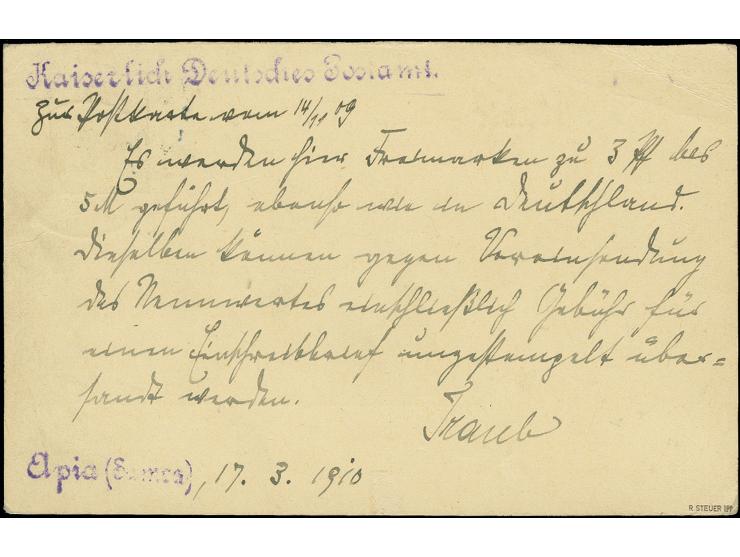 Kaiserlich Deutsches Postamt.
zur Postkarte vom 14/11 09
Es werden hier Freimarken zu 3 Pf bis
5 M geführt, ebenso wie in Deutschland.
Dieselben können gegen Voreinsendung
des Nennwertes einschließlich Gebühr für
einen Einschreibbrief ungestempelt über=
sandt werden.
Traub
Apia (Samoa), 17. 3. 1910
R. STEUER BPP